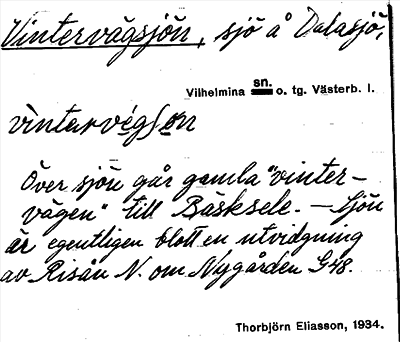 Vintervägsjön, sjö å Dalasjö,
Vilhelmina sn. o. tg. Västerb. l.
vìntarvég
Över sjön går gamla "vinter-
vägen" till Bäsksele. — Sjön
är egentligen blott en utvidgning
av Risån N. om Nygården G48.
Thorbjörn Eliasson, 1934.